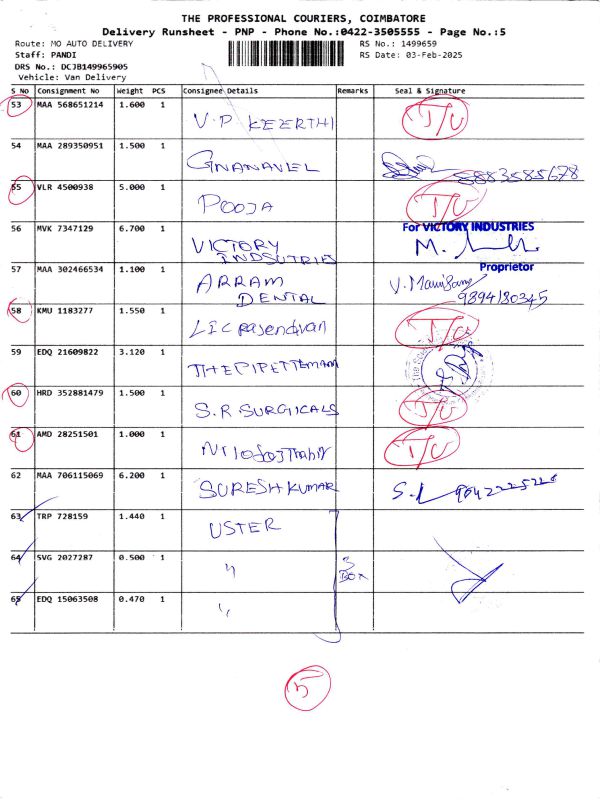 THE PROFESSIONAL COURIERS, COIMBATORE
Delivery Runsheet - PNP - Phone No.:0422-3505555 - Page No.:5
Route: MO AUTO DELIVERY RS No.: 1499659
Staff: PANDI RS Date: 03-Feb-2025
DRS No.: DCJB149965905
Vehicle: Van Delivery
S No Consignment No Weight PCS Consignee Details Remarks Seal & Signature
53 MAA 568651214 1.600 1 V.P KEERTHI I/U
54 MAA 289350951 1.500 1 GNANAVEL 8883585678
55 VLR 4500938 5.000 1 POOJA I/U
56 MVK 7347129 6.700 1 VICTORY INDSUTRIES For VICTORY INDUSTRIES
Proprietor
57 MAA 302466534 1.100 1 ARRAM DENTAL 9894180345
58 KMU 1183277 1.550 1 LIC I/U
59 EDQ 21609822 3.120 1
60 HRD 352881479 1.500 1 S.R SURGICALS I/U
61 AMD 28251501 1.000 1 I/U
62 MAA 706115069 6.200 1 SURESH KUMAR
63 TRP 728159 1.440 1 USTER
64 SVG 2027287 0.500 1 " 3 BOX
65 EDQ 15063508 0.470 1 "
5